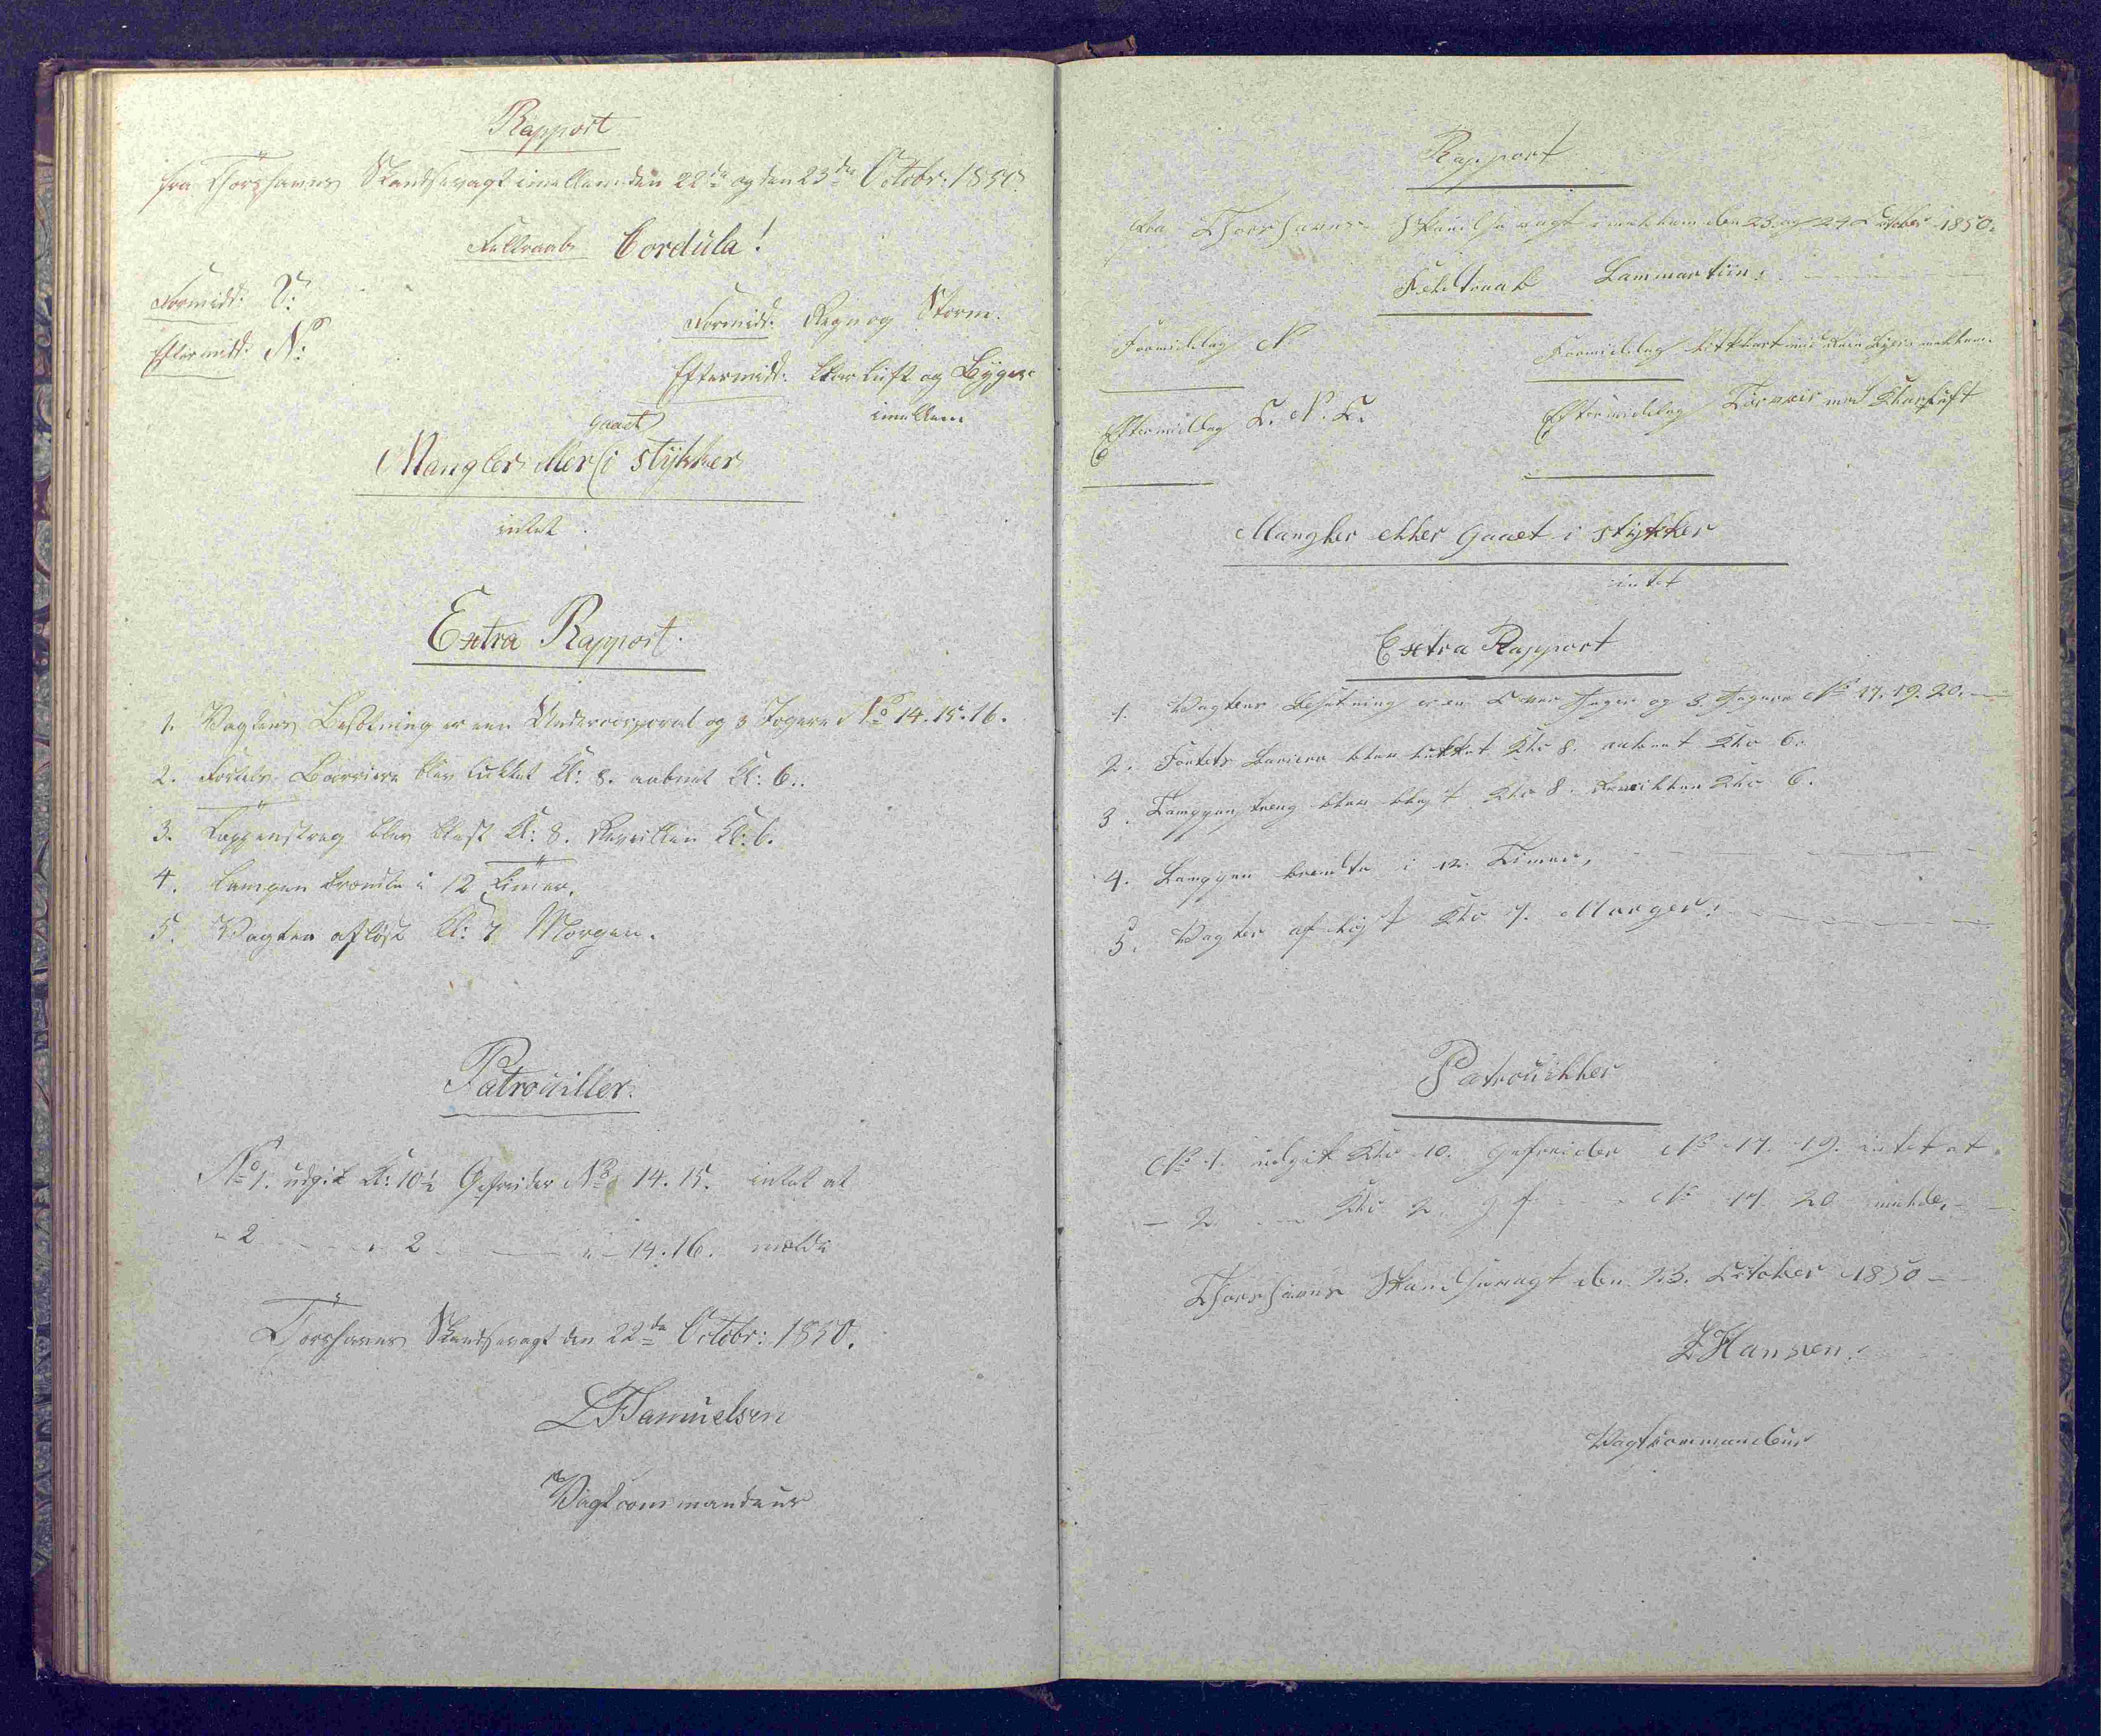 Rapport
fra Thorshavns Skandsevagt imellem den 22de og den 23de Octobr: 1850.
Feltraab Cordula!
Formidd: S:
Formidd: Regn og Storm.
Eftermidd: N:
Eftermidd: klar Luft og Byger
imellem
gaaet
Mangler eller i stykker
intet
Extra Rapport.
1. Vagtens Besætning er een Undercorporal og 3 Jægere No 14. 15. 16.
2. Fortets Barriere blev lukket Kl: 8. aabnet Kl: 6.
3. Tappenstreg blev blæst Kl: 8. Reveillen Kl: 6.
4. Lampen brændte i 12 Timer.
5. Vagten afløst Kl: 7 Morgen.
Patrouiller.
No 1. udgik Kl: 10½ Gefreider No 14. 15. intet at
" 2 " 2 " 14. 16. melde
Thorshavns Skandsevagt den 22de Octobr: 1850.
Samuelsen
Vagtcommandeur
Rapport
fra Thorshavns Skandsevagt imellem den 23. og 24 October 1850.
Feltraab Lammartiin.
Formiddag N.
Formiddag imellem
Eftermiddag O. N. O.
Eftermiddag Tørveir med Klarluft
Mangler eller Gaaet i stykker
intet
Extra Rapport
1. Vagtens Besætning er en Over Jæger og 3 Jægere No 17. 19. 20.
2. Fortets Bariere blev lukket Klo 8. aabnet Klo 6.
3. blev blæst Klo 8. Reveillen Klo 6.
4. Lampen brendte i 12. Timer,
5. Vagten afløst Klo 7. Morgen.
Patrouiller
No 1. udgik Klo 10. Gefreider No 17. 19. intet at
- 2 - Klo 2. Gf - No 17. 20 melde.
Thorshavns Skandsevagt den 23. October 1850
Hansen.
Vagtcommandeur